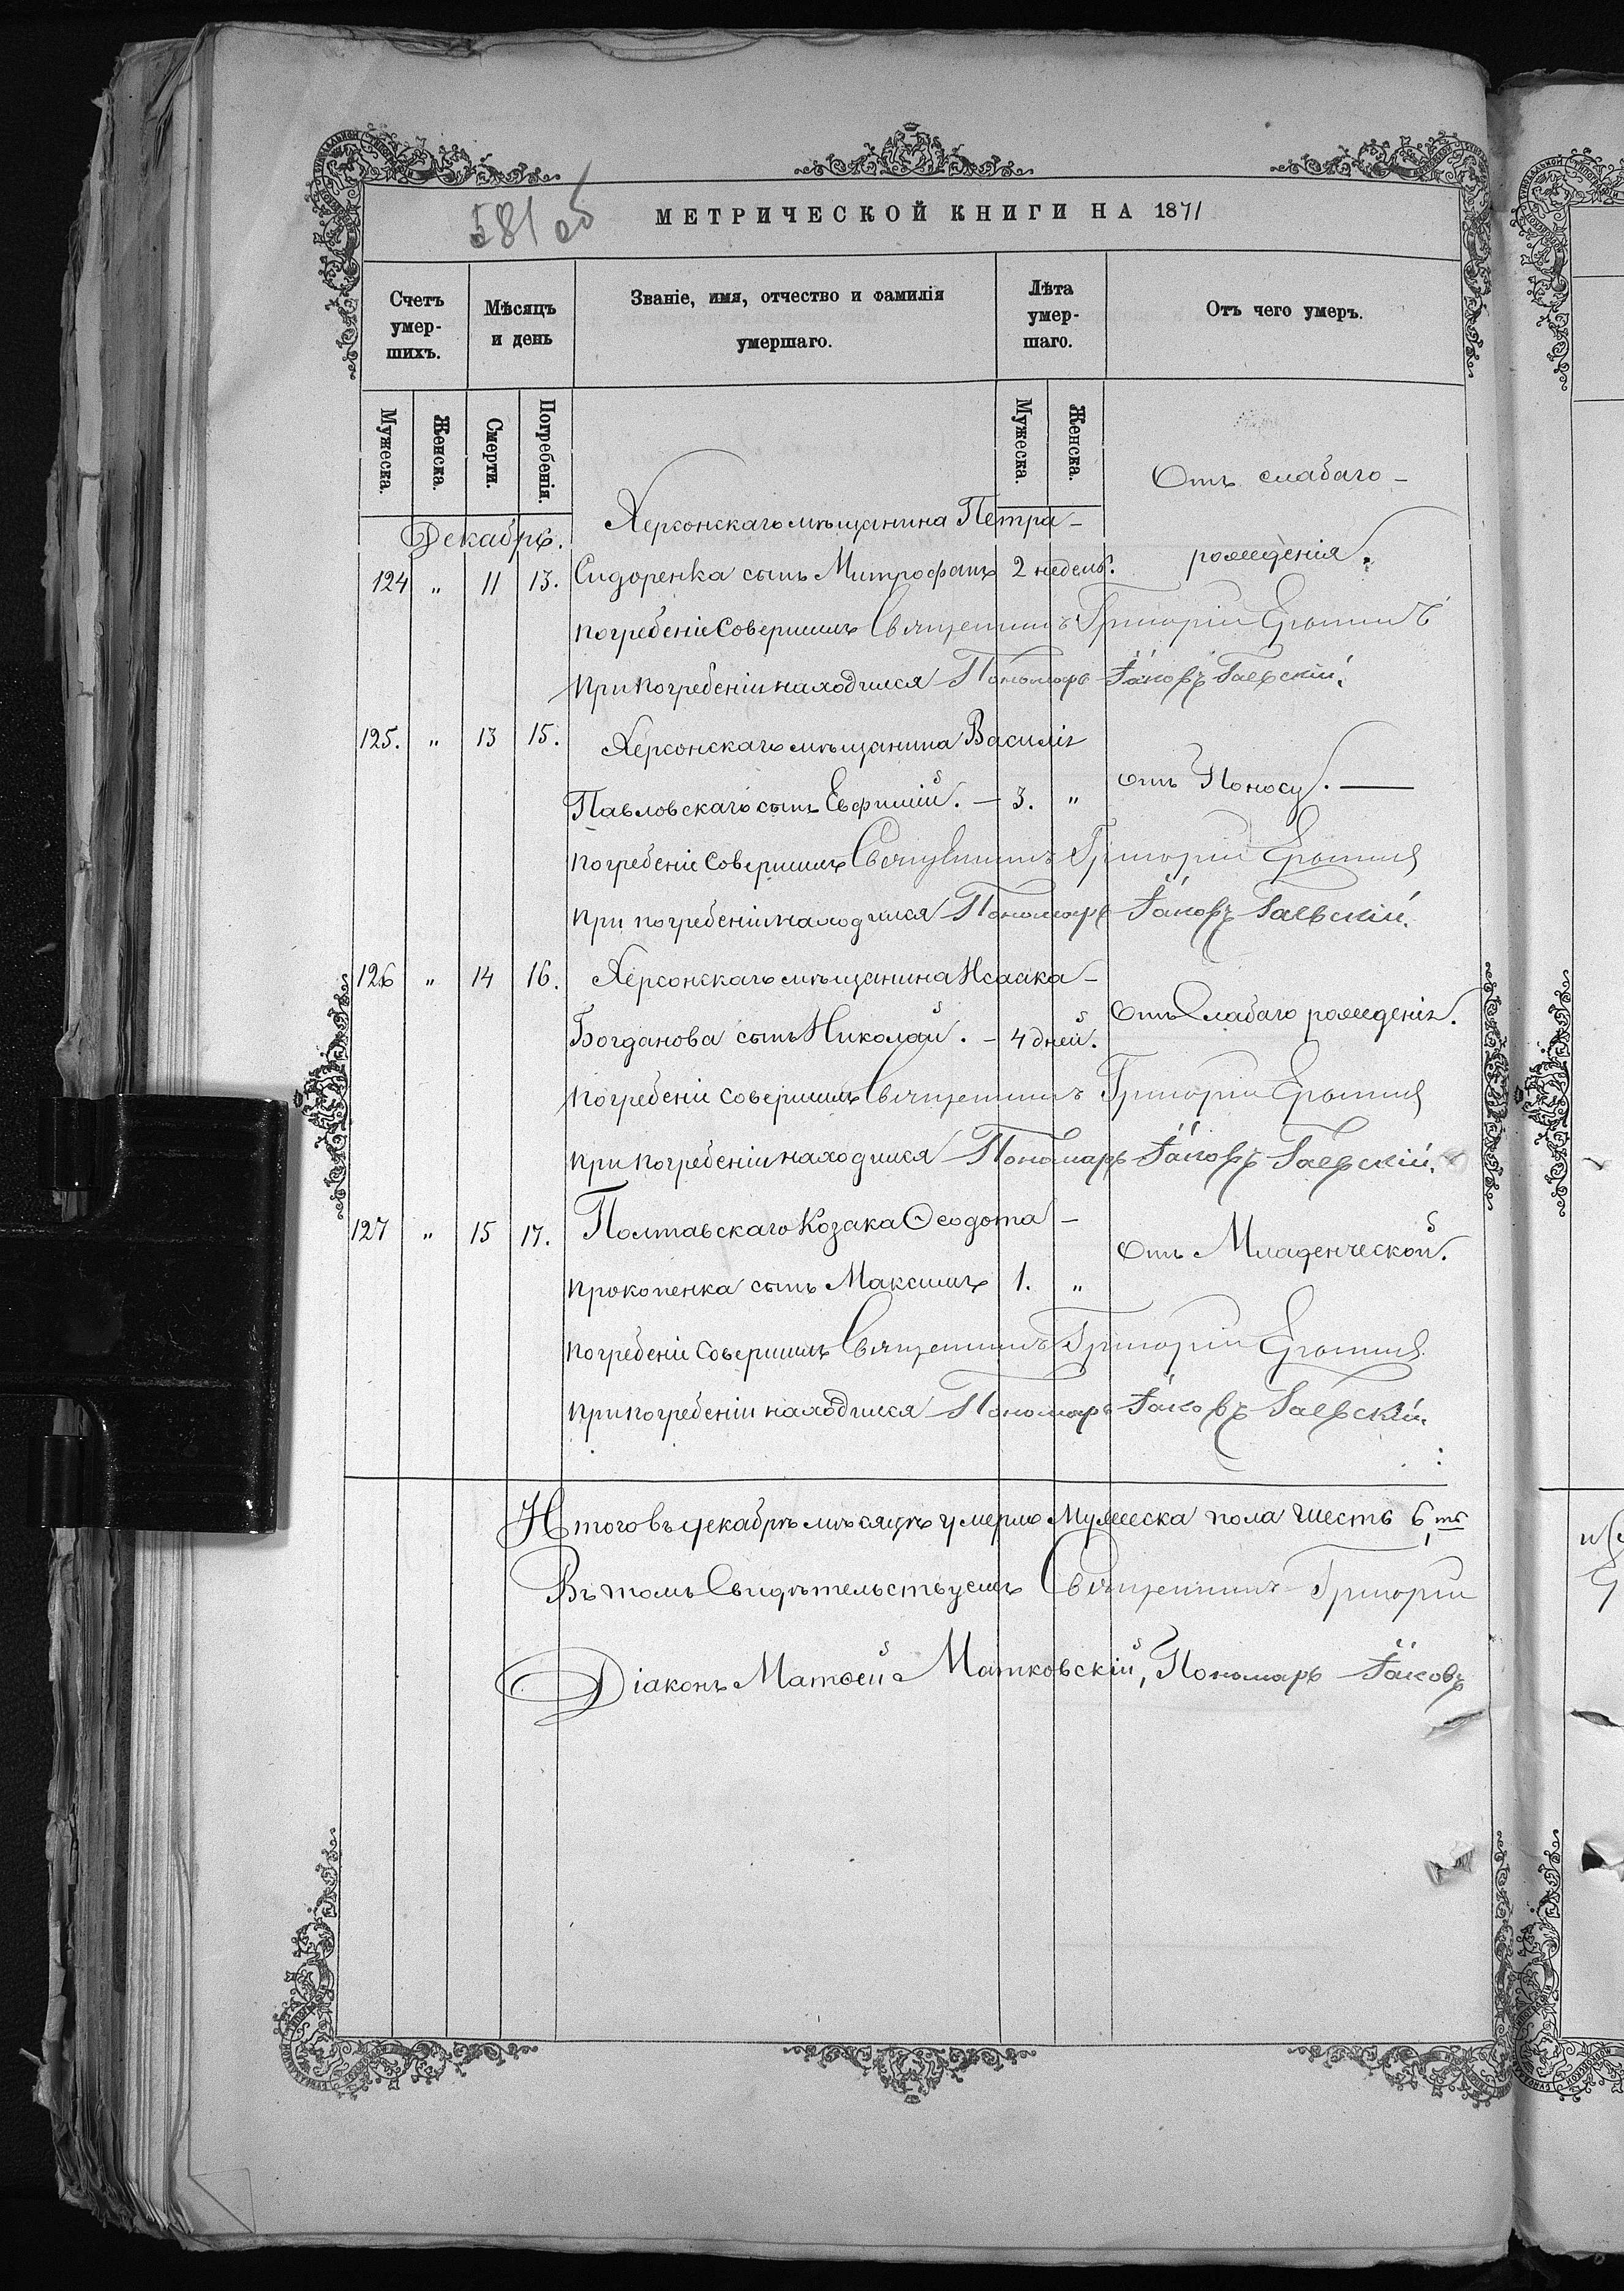 581 об
МЕТРИЧЕСКОЙ КНИГИ НА 1871
Счетъ умер-шихъ.
Мѣсяцъ и день
Званіе, имя, отчество и фамилія умершаго.
Лѣта умер-шаго.
Отъ чего умеръ.
Мужеска.
Женска.
Смерти.
Погребенія.
Мужеска.
Женска.
Декабрь.
Херсонскаго мѣщанина Петра –
Отъ слабаго –
124 „ 11 13. Сидоренка сынъ Митрофанъ 2 недель. рожденія.
погребеніе Совершилъ Священникъ Григорій
При погребеніи находился Пономарь Іаковъ Гаевскій.
125. „ 13 15. Херсонскаго мѣщанина Василія
Павловскаго сынъ Евфимій. – 3. „ отъ Поносу. —
погребеніе Совершилъ Священникъ Григорій
При погребеніи находился Пономарь Іаковъ Гаевскій.
126 „ 14 16. Херсонскаго мѣщанина Исаака –
Богданова сынъ Николай. – 4 дней. Отъ Слабаго рожденія.
погребеніе совершилъ Священникъ Григорій
При погребеніи находился Пономарь Іаковъ Гаевскій.
127 „ 15 17. Полтавскаго Козака Ѳеодота –
Прокопенка сынъ Максимъ 1. „ Отъ Младенческой.
погребеніе Совершилъ Священникъ Григорій
При погребеніи находился Пономарь Іаковъ Гаевскій.
Итого въ декабрѣ мѣсяцѣ умерло Мужеска пола шесть 6,ть
Въ томъ Свидѣтельствуемъ Священникъ Григорій
Діаконъ Матѳей Матковскій, Пономарь Іаковъ